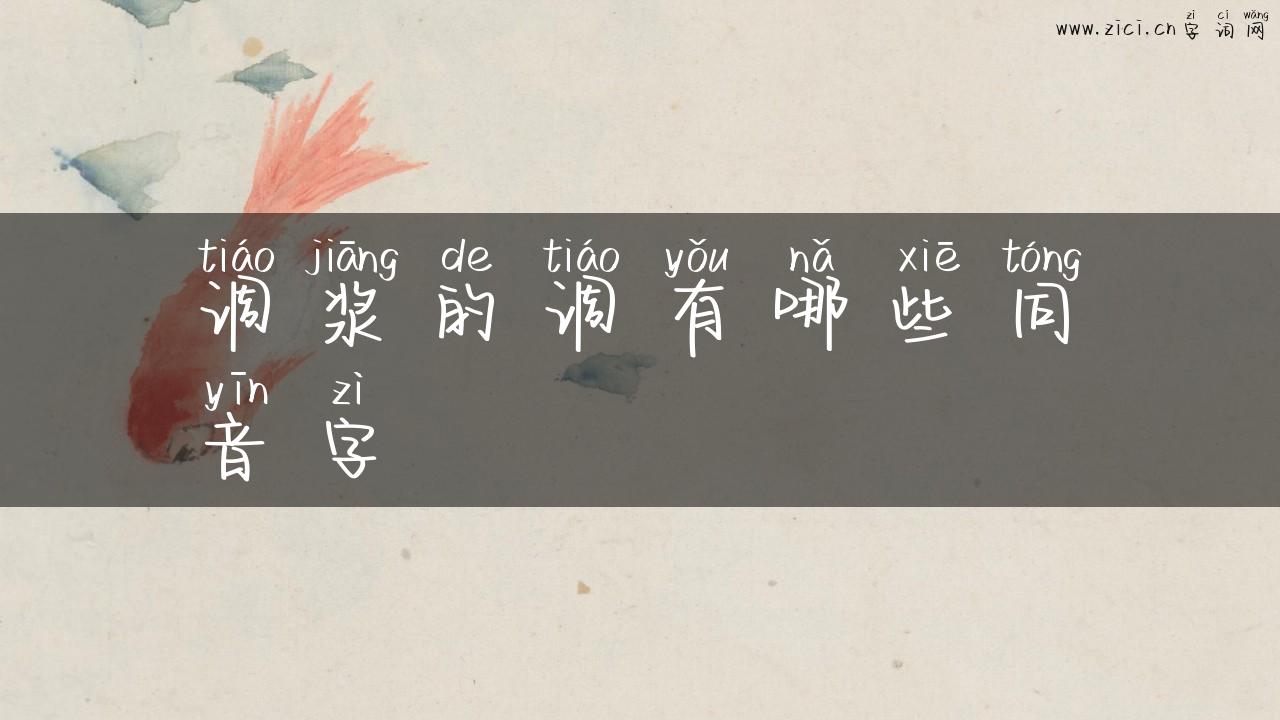 zì cí wǎng
www.zici.cn 字词网
tiáo jiāng de tiáo yǒu nǎ xiē tóng
调浆的调有哪些同
yīn zì
音字